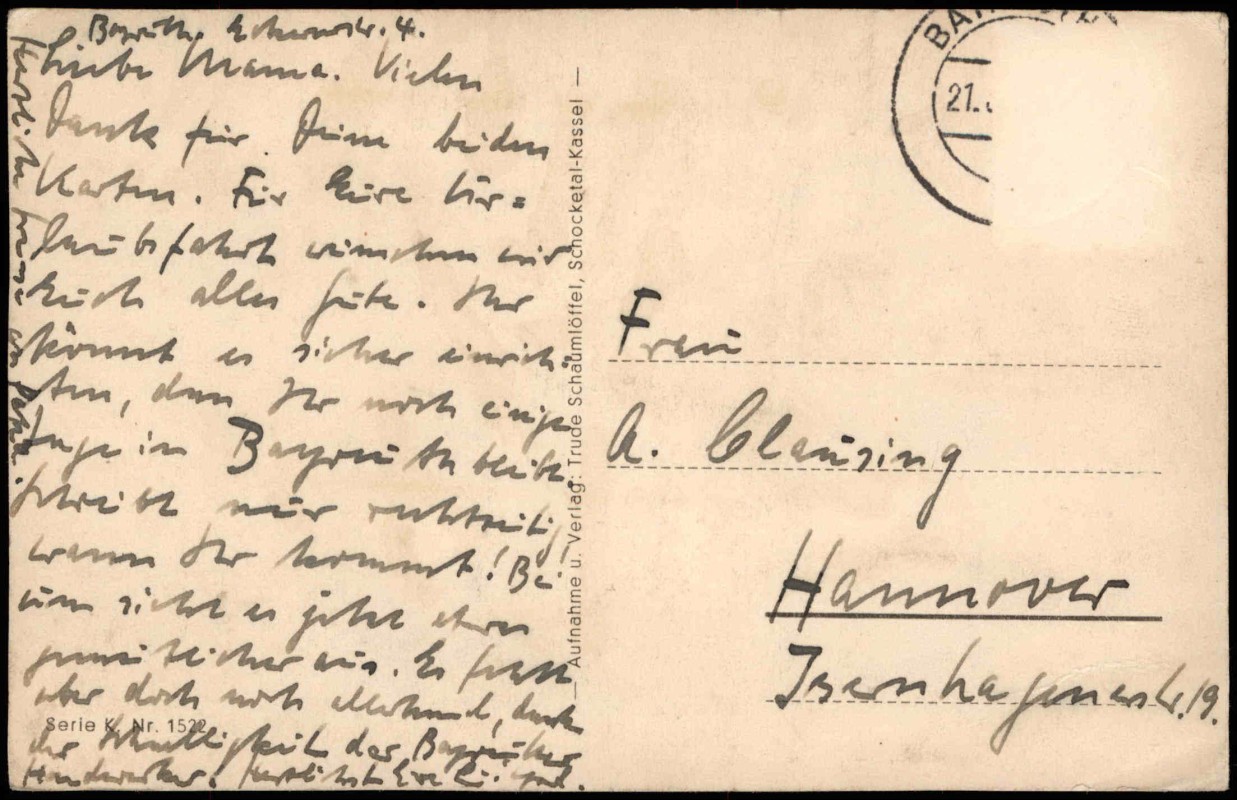 Bayreuth, 4.
Liebe Mama. Vielen
Dank für Deine beiden
Karten. Für Eure Ur=
laubsfahrt wünschen wir
Euch alles Gute. Ihr
könnt es sicher einrich-
ten, dass Ihr noch einige
Tage in Bayreuth bleibt.
Schreibt nur rechtzeitig,
wann Ihr kommt! Bei
uns sieht es jetzt etwas
gemütlicher aus. Es fehlt
aber doch noch allerhand, dank
der Schnelligkeit der Bayreuther
Handwerker. Herzlichst Eure
Herzliche Grüße
Serie K, Nr. 1522
Aufnahme u. Verlag: Trude Schaumlöffel, Schocketal-Kassel
BA
21.
Frau
A. Clausing
Hannover
Isernhagenerstr. 19.